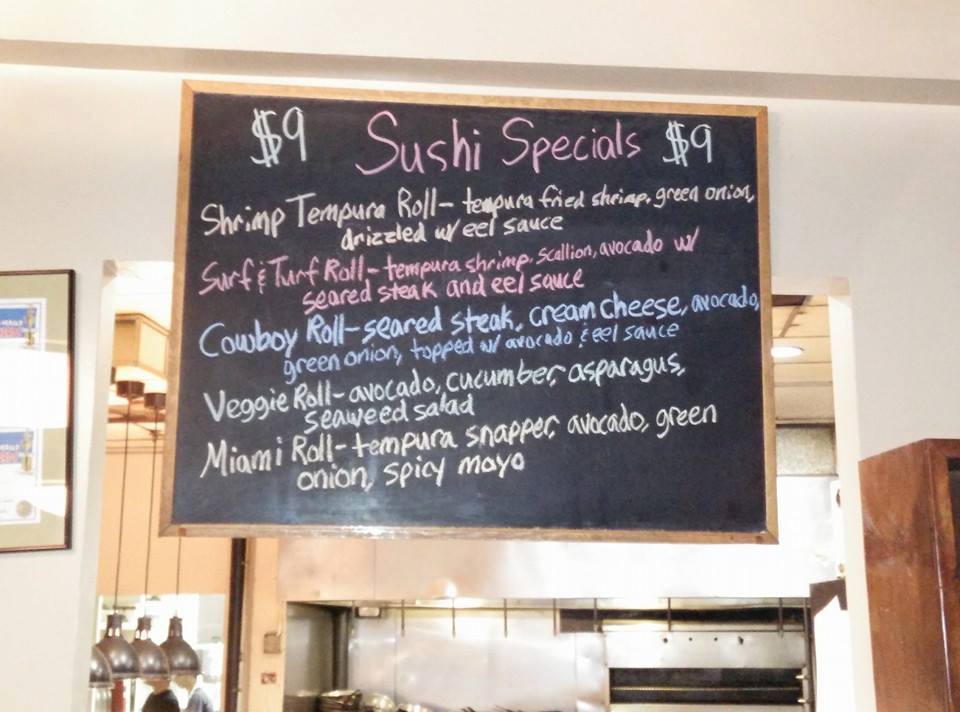 $9 Sushi Specials $9
Shrimp Tempura Roll- tempura fried shrimp, green onion,
drizzled w/ eel sauce
Surf & Turf Roll- tempura shrimp, scallion, avocado w/
seared steak and eel sauce
Cowboy Roll- seared steak, cream cheese, avocado,
green onion, topped w/ avocado & eel sauce
Veggie Roll- avocado, cucumber, asparagus,
seaweed salad
Miami Roll- tempura snapper, avocado, green
onion, spicy mayo